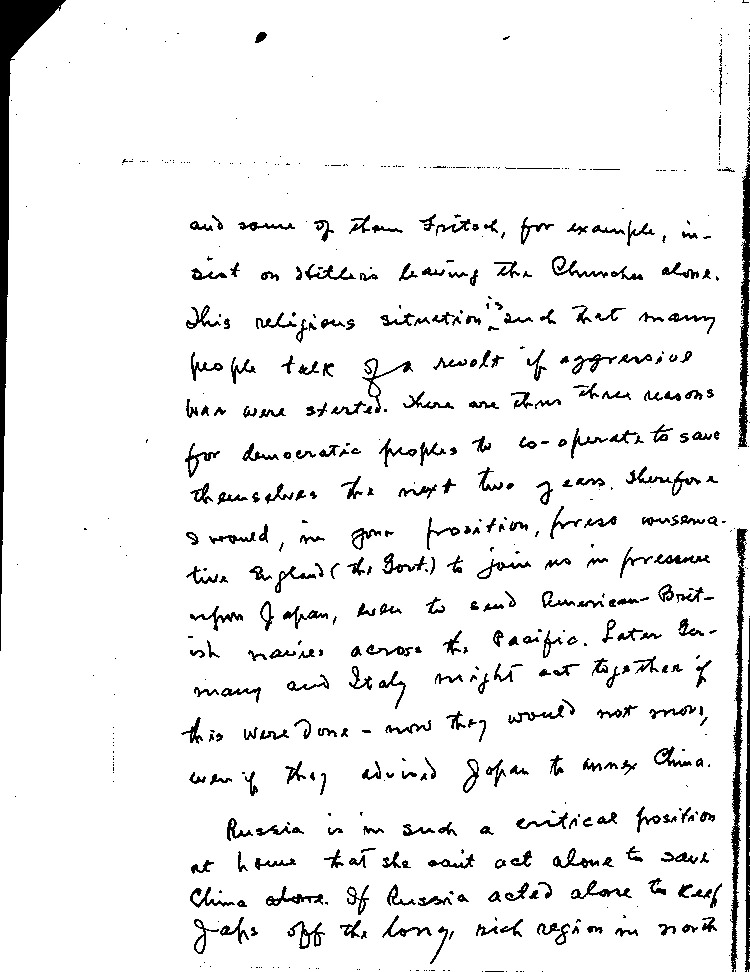 and some of them Fritsch, for example, in-
sist on Hitler's leaving the Churches alone.
This religious situation is such that many
people talk of a revolt if aggressive
war were started. There are thus three reasons
for democratic peoples to co-operate to save
themselves the next two years. Therefore
I would, in your position, press conserva-
tive England (the Govt.) to join us in pressure
upon Japan, even to send American-Brit-
ish navies across the Pacific. Later Ger-
many and Italy might act together if
this were done - now they would not move,
even if they advised Japan to annex China.
Russia is in such a critical position
at home that she can't act alone to save
China alone. If Russia acted alone to keep
Japs off the long, rich region in north